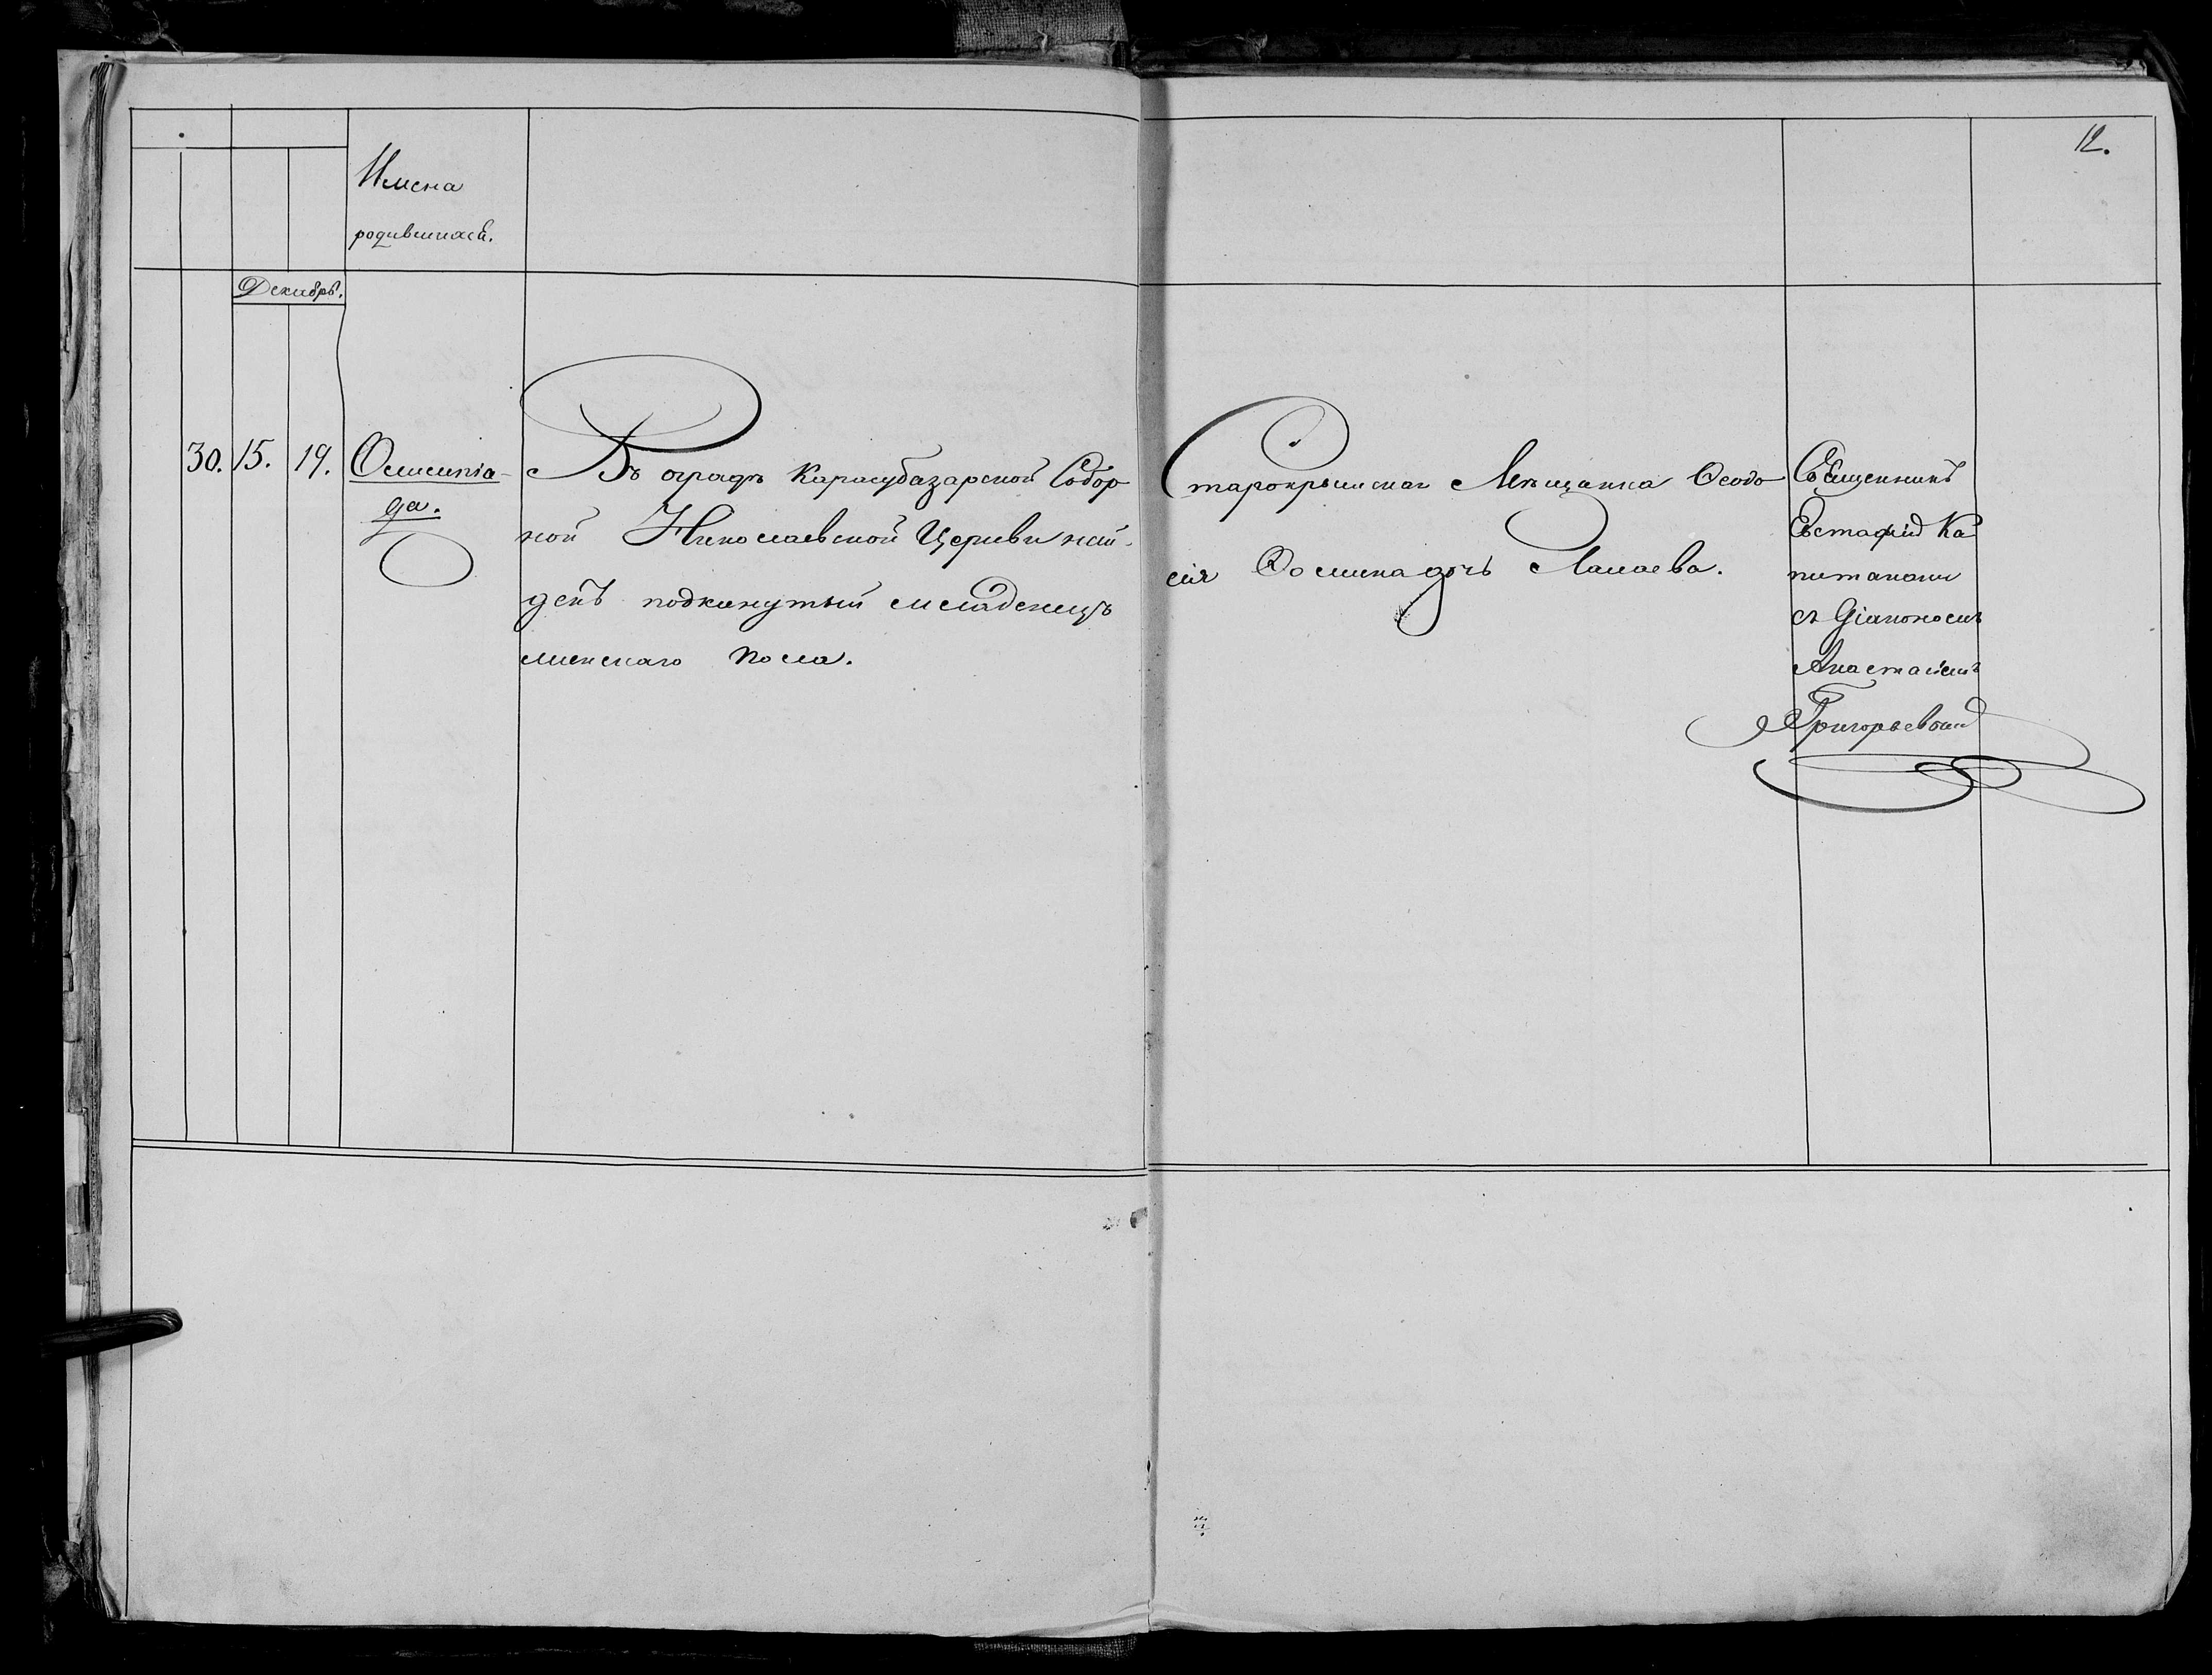 12.
Имена
родившихся.
Декабрь.
30. 15. 19. Олимпіа-
да.
Въ оградѣ Карасубазарской Собор
ной Николаевской Церкви най-
денъ подкинутый младенецъ
женскаго пола.
Старокрымская Мѣщанка Ѳеодо
сія Ѳомина дочь
Священникъ
Евстафій Ка
питанаки
съ Діакономъ
Анастасіемъ
Григорьевымъ